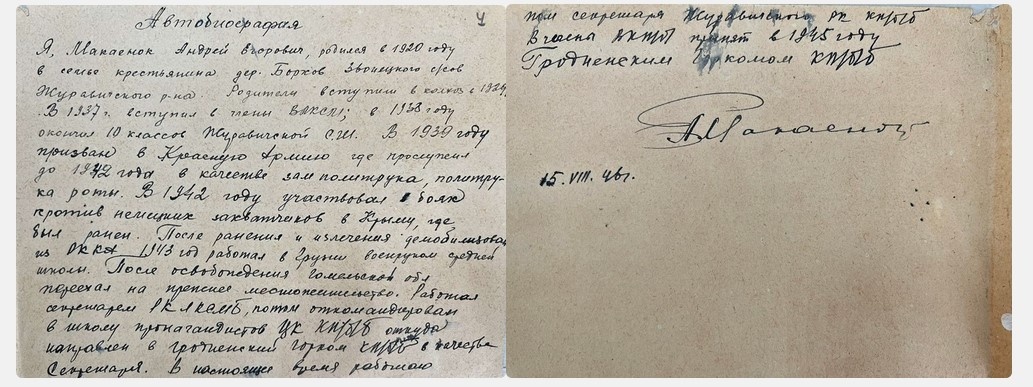 Автобиография
4
Я, Макаенок Андрей Егорович, родился в 1920 году
в семье крестьянина дер. Борхов Звонецкого с/сов
Журавичского р-на. Родители вступили в колхоз в 1929
В 1937 г. вступил в члены ВЛКСМ; в 1938 году
окончил 10 классов Журавичской С.Ш. В 1939 году
призван в Красную Армию где прослужил
до 1942 года в качестве зам политрука, политру-
ка роты. В 1942 году участвовал в боях
против немецких захватчиков в Крыму, где
был ранен. После ранения и излечения демобилизован
из РККА 1943 год работал в Грузии военруком средней
школы. После освобождения Гомельской обл
переехал на прежнее местожительство. Работал
секретарем РК ЛКСМБ, потом откомандирован
в школу пропагандистов ЦК КП/б/Б откуда
направлен в Гродненский горком КП/б/Б в качестве
Секретаря. В настоящее время работаю
пом секретаря Журавичского РК КП/б/Б
В члены ВКП/б/ принят в 1945 году
Гродненским Горкомом КП/б/Б
А Макаенок
15. VIII. 46 г.